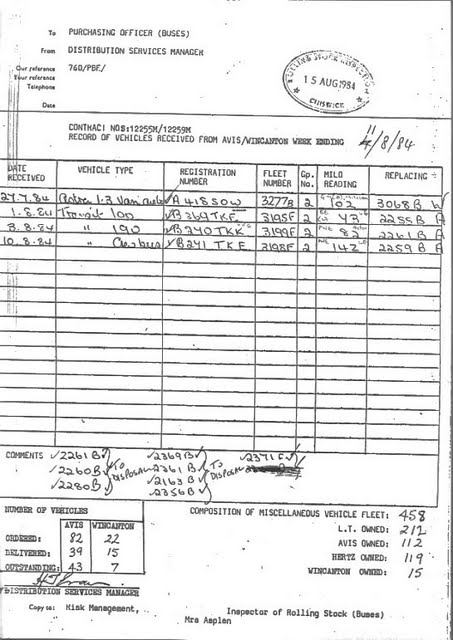 To PURCHASING OFFICER (BUSES)
From DISTRIBUTION SERVICES MANAGER
Our reference 760/PBF/
Your reference
Telephone
Date
15 AUG 1984
CHISWICK
CONTRACT NOS:12255M/12259M
RECORD OF VEHICLES RECEIVED FROM AVIS/WINCANTON WEEK ENDING 11/8/84
DATE RECEIVED VEHICLE TYPE REGISTRATION NUMBER FLEET NUMBER Gp. No. MILO READING REPLACING
27.7.84 1.3 Van A418SOW 3277B 2 102 3068B W
1.8.84 Transit 100 B369TKE 3195F 2 43 2255B A
8.8.84 " 190 B240TKK 3199F 2 82 2261B A
10.8.84 " B241TKE 3198F 2 142 2259B A
COMMENTS 2261B 2369B 2371F
2260B TO DISPOSAL 2361B TO DISPOSAL
2280B 2163B
2356B
NUMBER OF VEHICLES
AVIS WINCANTON
ORDERED: 82 22
DELIVERED: 39 15
OUTSTANDING: 43 7
COMPOSITION OF MISCELLANEOUS VEHICLE FLEET: 458
L.T. OWNED: 212
AVIS OWNED: 112
HERTZ OWNED: 119
WINCANTON OWNED: 15
DISTRIBUTION SERVICES MANAGER
Copy to: Risk Management, Inspector of Rolling Stock (Buses)
Mrs Asplen